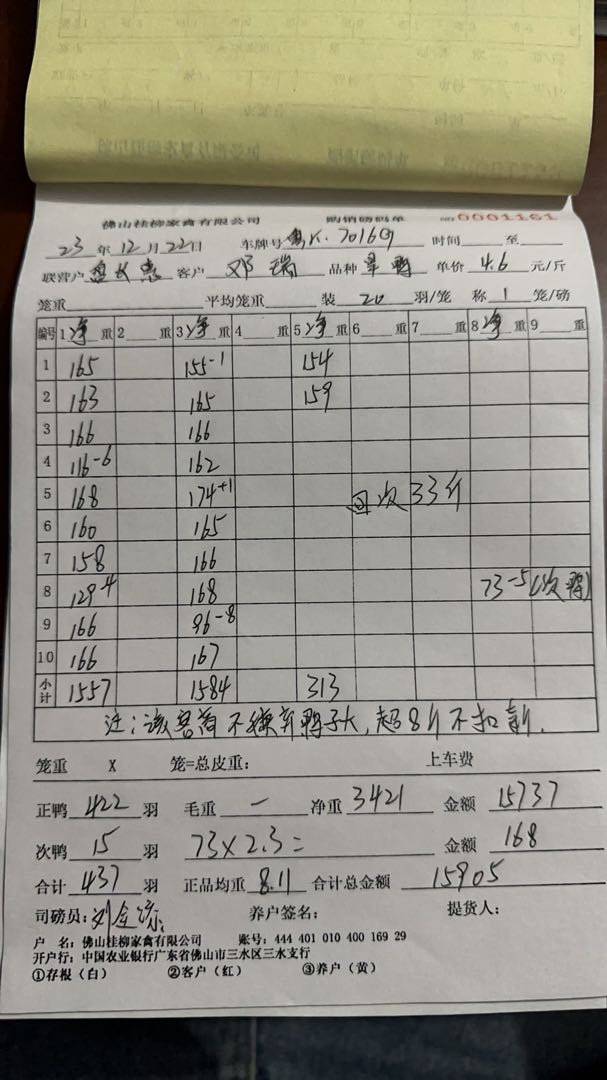 佛山桂柳家禽有限公司 购销磅码单 0001161
23年12月22日 车牌号 粤K·7016 时间 至
联营户 客户 邓瑞 品种 单价 4.6 元/斤
笼重 平均笼重 装 20 羽/笼 称 1 笼/磅
编号 1 净 重 2 重 3 净 重 4 重 5 净 重 6 重 7 重 8 净 重 9 重
1 165 155-1 154
2 163 165 159
3 166 166
4 116-6 162
5 168 174+1 回次33斤
6 160 165
7 158 166
8 129-4 168 73-5(次鸭)
9 166 96-8
10 166 167
小计 1557 1584 313
注:该客商不嫌弃鸭子大,超8斤不扣款.
笼重 X 笼=总皮重: 上车费
正鸭 422 羽 毛重 — 净重 3421 金额 15737
次鸭 15 羽 73×2.3= 金额 168
合计 437 羽 正品均重 8.11 合计总金额 15905
司磅员: 养户签名: 提货人:
户 名:佛山桂柳家禽有限公司 账号:444 401 010 400 169 29
开户行:中国农业银行广东省佛山市三水区三水支行
①存根(白) ②客户(红) ③养户(黄)